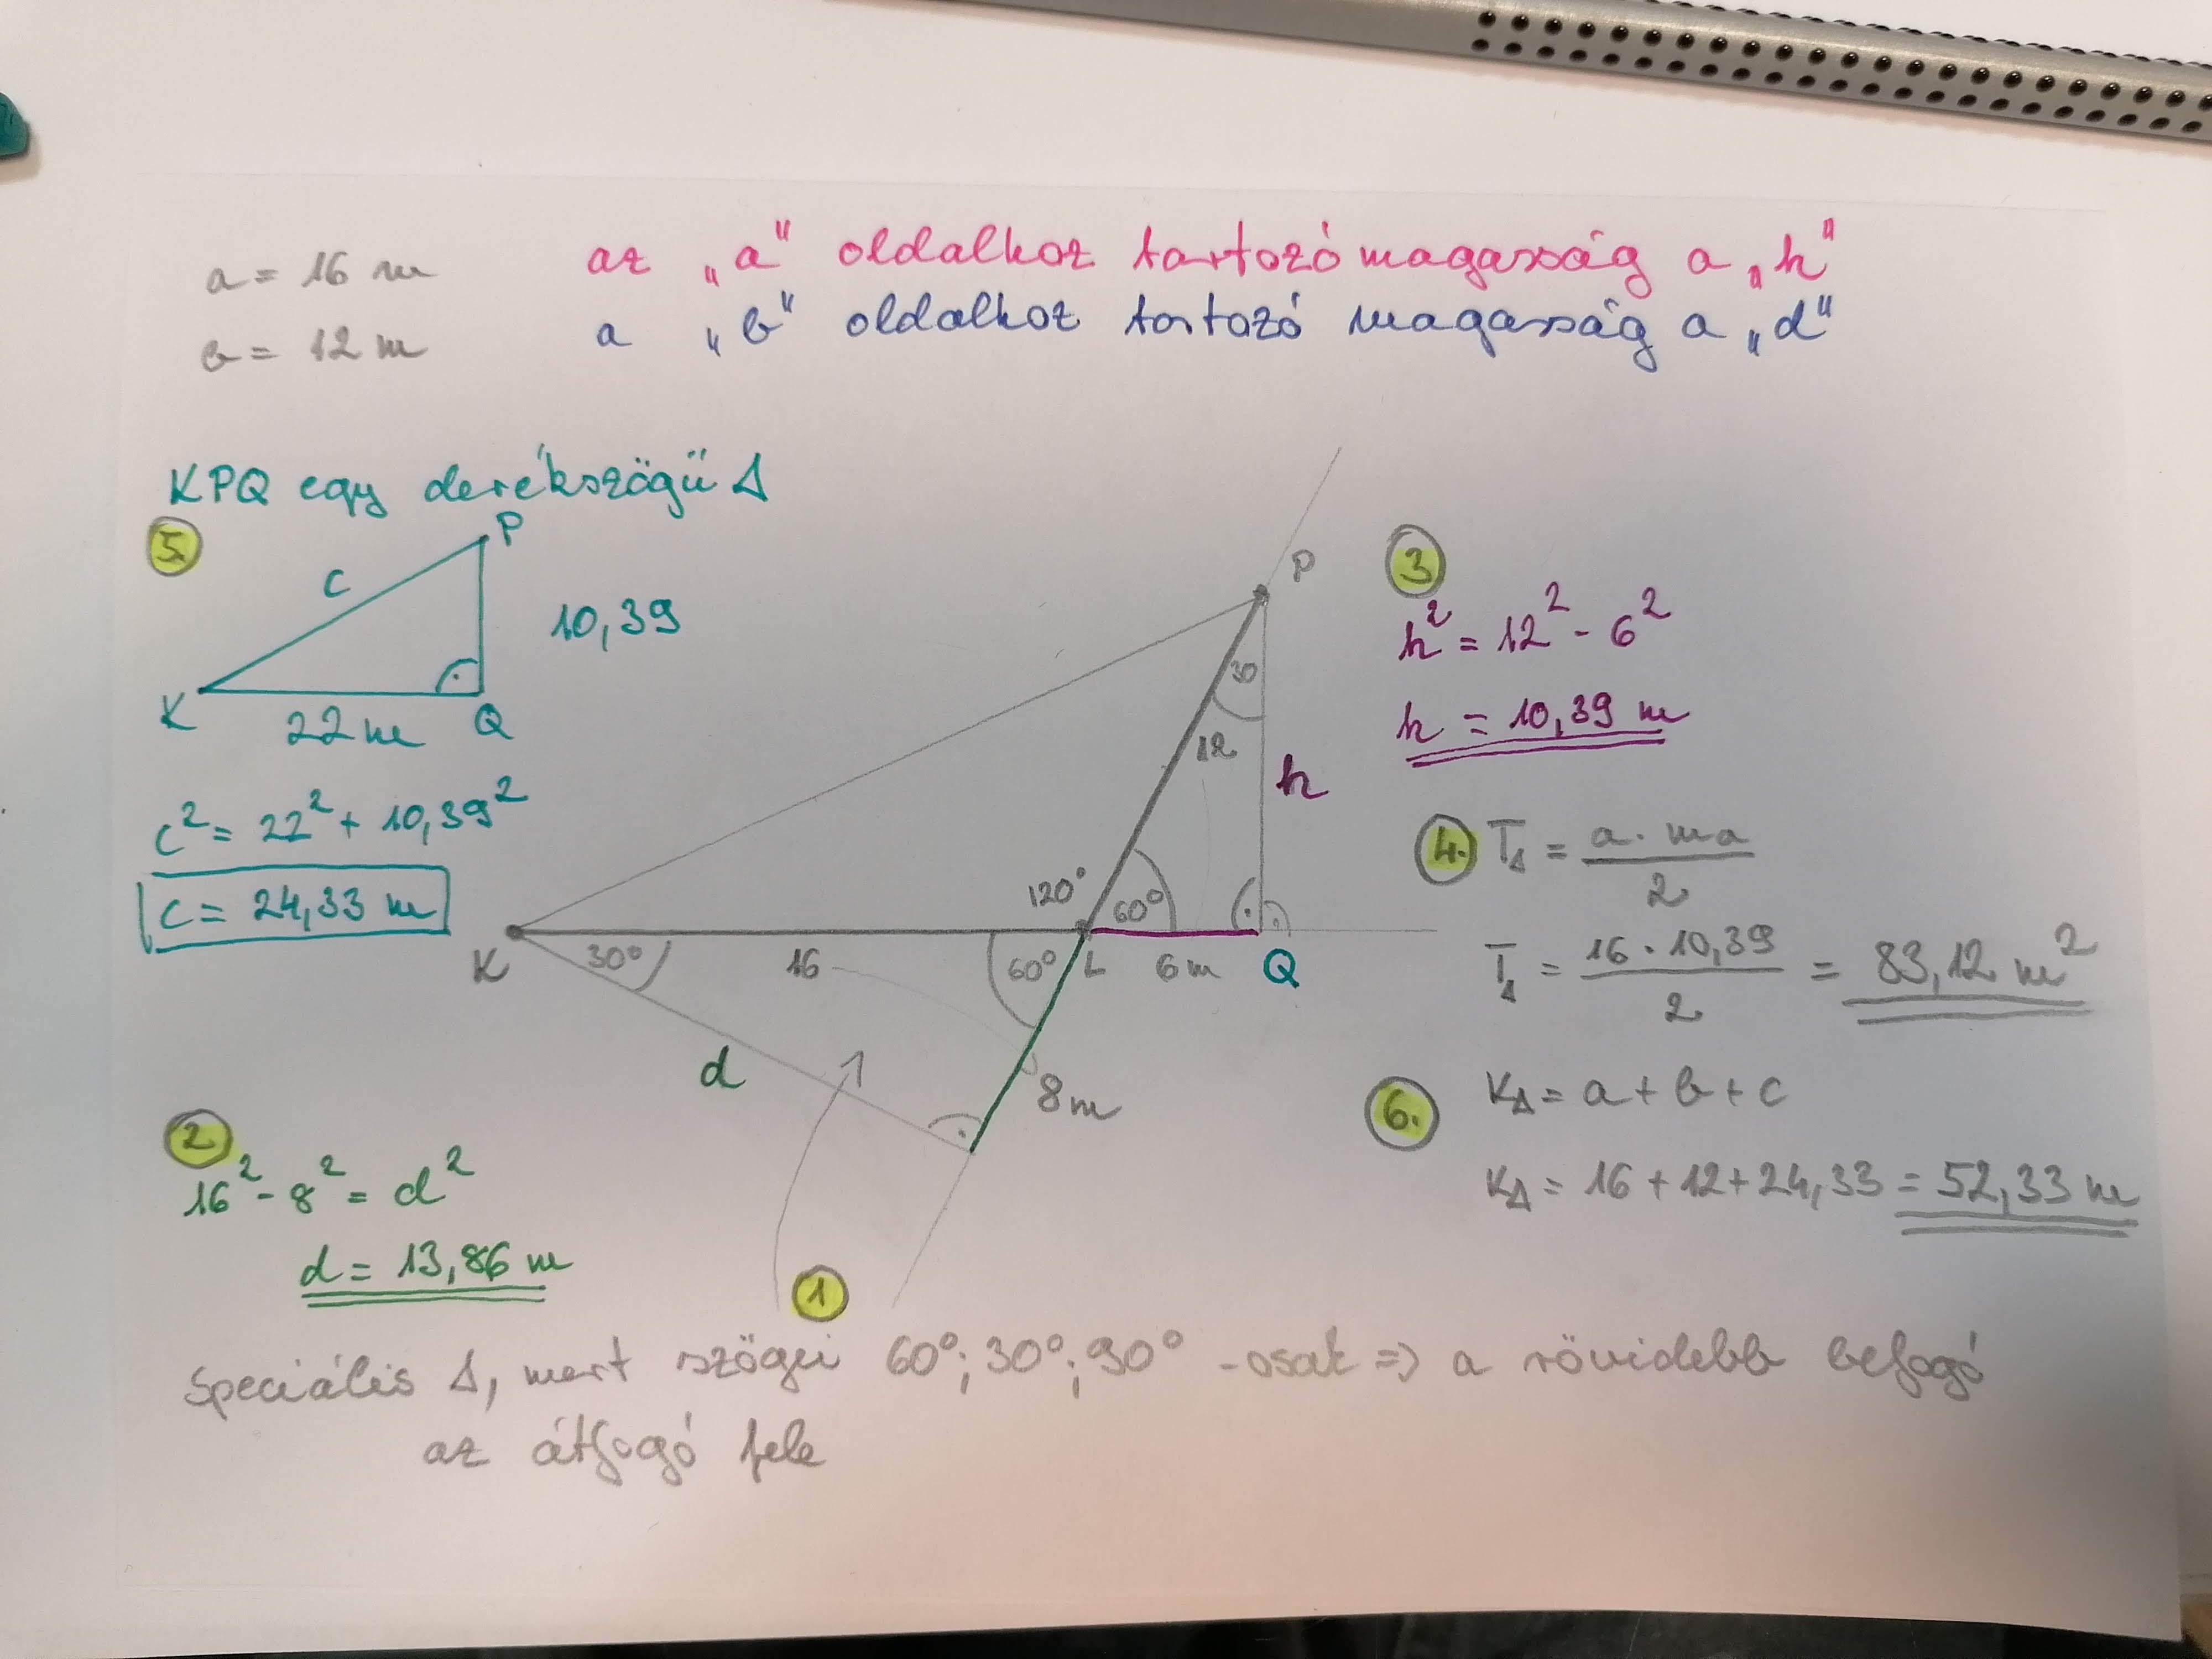 a = 16 m
b = 12 m
az „a" oldalhoz tartozó magasság a „h"
a „b" oldalhoz tartozó magasság a „d"
KPQ egy derékszögű Δ
5.
P
c
10,39
K
22 m
Q
c² = 22² + 10,39²
c = 24,33 m
P
30
12
h
120°
60°
K
30°
16
60°
L
6 m
Q
d
8 m
3
h² = 12² - 6²
h = 10,39 m
4. T_Δ = a · ma / 2
T_Δ = 16 · 10,39 / 2 = 83,12 m²
6. K_Δ = a + b + c
K_Δ = 16 + 12 + 24,33 = 52,33 m
2
16² - 8² = d²
d = 13,86 m
1
Speciális Δ, mert szögei 60°; 30°; 90° -osak => a rövidebb befogó
az átfogó fele